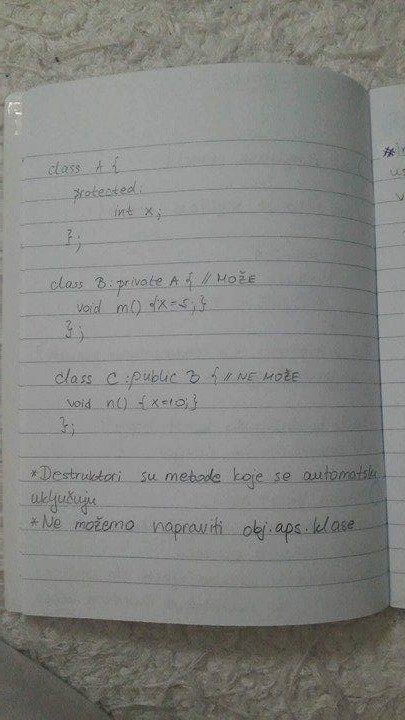 class A {
protected:
int x;
};
class B: private A { // MOŽE
void m() {x=5;}
};
class C: public B { // NE MOŽE
void n() {x=10;}
};
*Destruktori su metode koje se automatski
uključuju
*Ne možemo napraviti obj. aps. klase